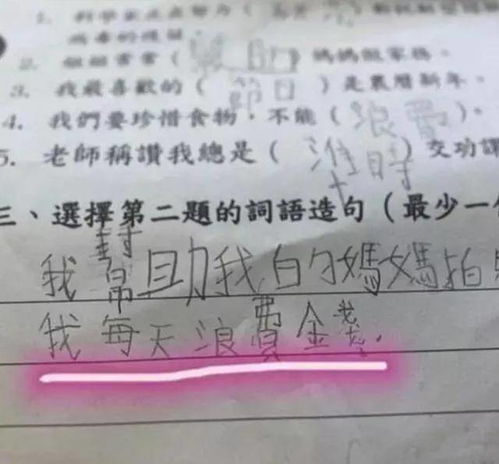 2. 姐姐常常（幫助）媽媽做家務。
3. 我最喜歡的（節日）是農曆新年。
4. 我們要珍惜食物，不能（浪費）。
5. 老師稱讚我總是（準時）交功課
三、選擇第二題的詞語造句（最少一
我幫助我的媽媽拍
我每天浪費金錢.